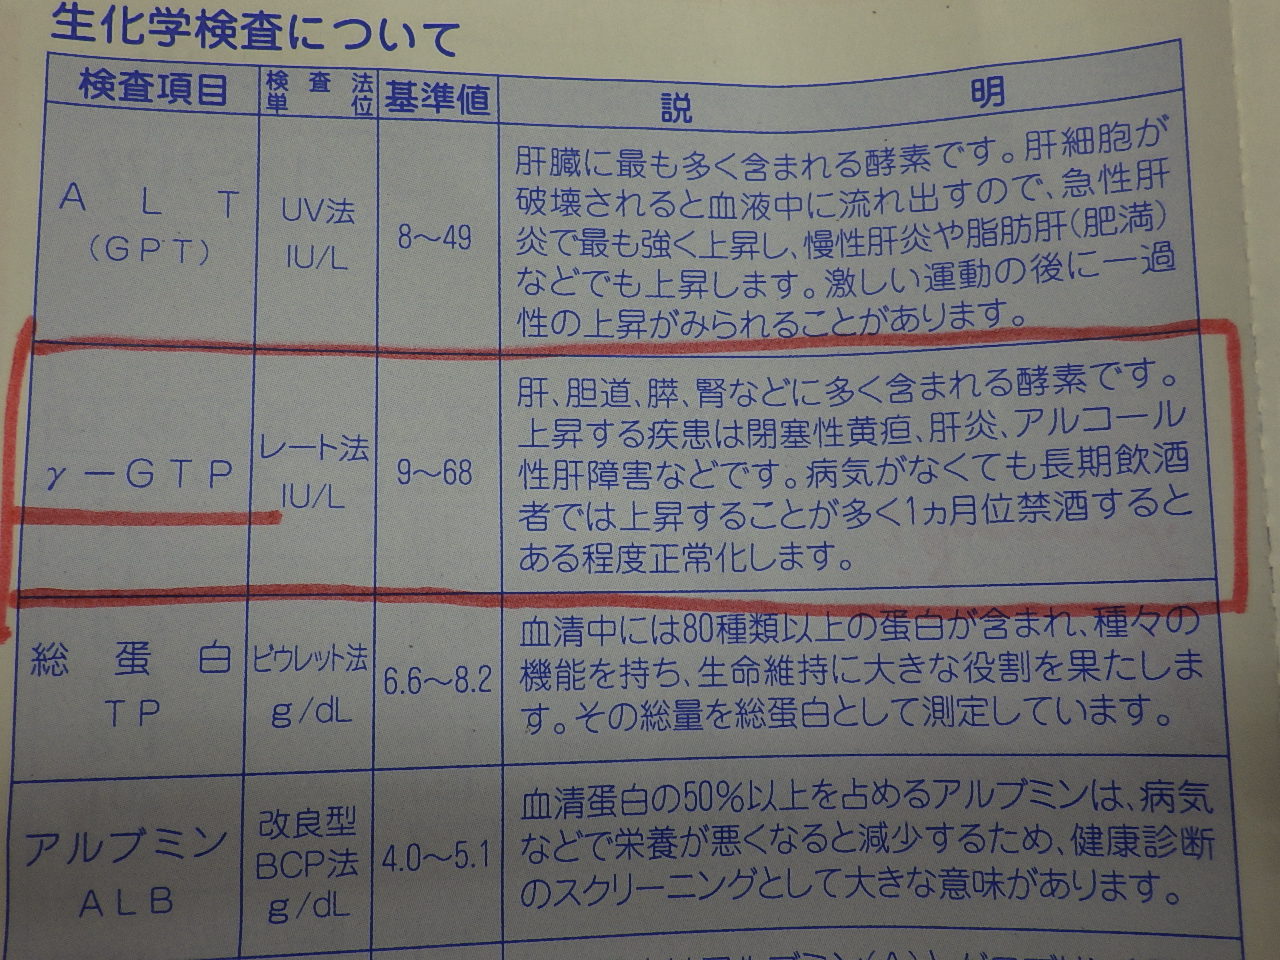 生化学検査について
検査項目
検査法
単位
基準値
説明
ALT
(GPT)
UV法
IU/L
8〜49
肝臓に最も多く含まれる酵素です。肝細胞が
破壊されると血液中に流れ出すので、急性肝
炎で最も強く上昇し、慢性肝炎や脂肪肝(肥満)
などでも上昇します。激しい運動の後に一過
性の上昇がみられることがあります。
γ−GTP
レート法
IU/L
9〜68
肝、胆道、膵、腎などに多く含まれる酵素です。
上昇する疾患は閉塞性黄疸、肝炎、アルコール
性肝障害などです。病気がなくても長期飲酒
者では上昇することが多く1ヵ月位禁酒すると
ある程度正常化します。
総蛋白
TP
ビウレット法
g/dL
6.6〜8.2
血清中には80種類以上の蛋白が含まれ、種々の
機能を持ち、生命維持に大きな役割を果たしま
す。その総量を総蛋白として測定しています。
アルブミン
ALB
改良型
BCP法
g/dL
4.0〜5.1
血清蛋白の50%以上を占めるアルブミンは、病気
などで栄養が悪くなると減少するため、健康診断
のスクリーニングとして大きな意味があります。